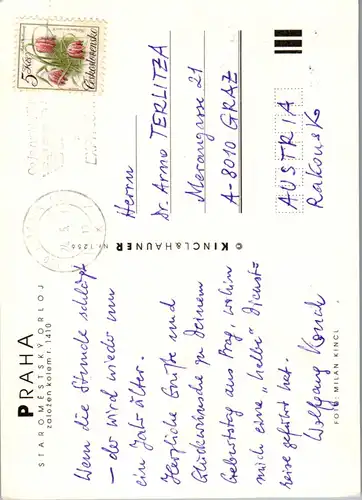 PRAHA
STAROMĚSTSKÝ ORLOJ
založen kolem r. 1410
Wenn die Stunde schlägt
– der wird wieder um
ein Jahr älter.
Herzliche Grüße und
Glückwünsche zu Deinem
Geburtstag aus Prag, wohin
mich eine "halbe" Dienst-
reise geführt hat.
Wolfgang
FOTO: MILAN KINCL
© KINCL & HAUNER
5 Kčs
Československo
Herrn
Dr. Arno TERLITZA
Merangasse 21
A-8010 GRAZ
AUSTRIA
Rakousko